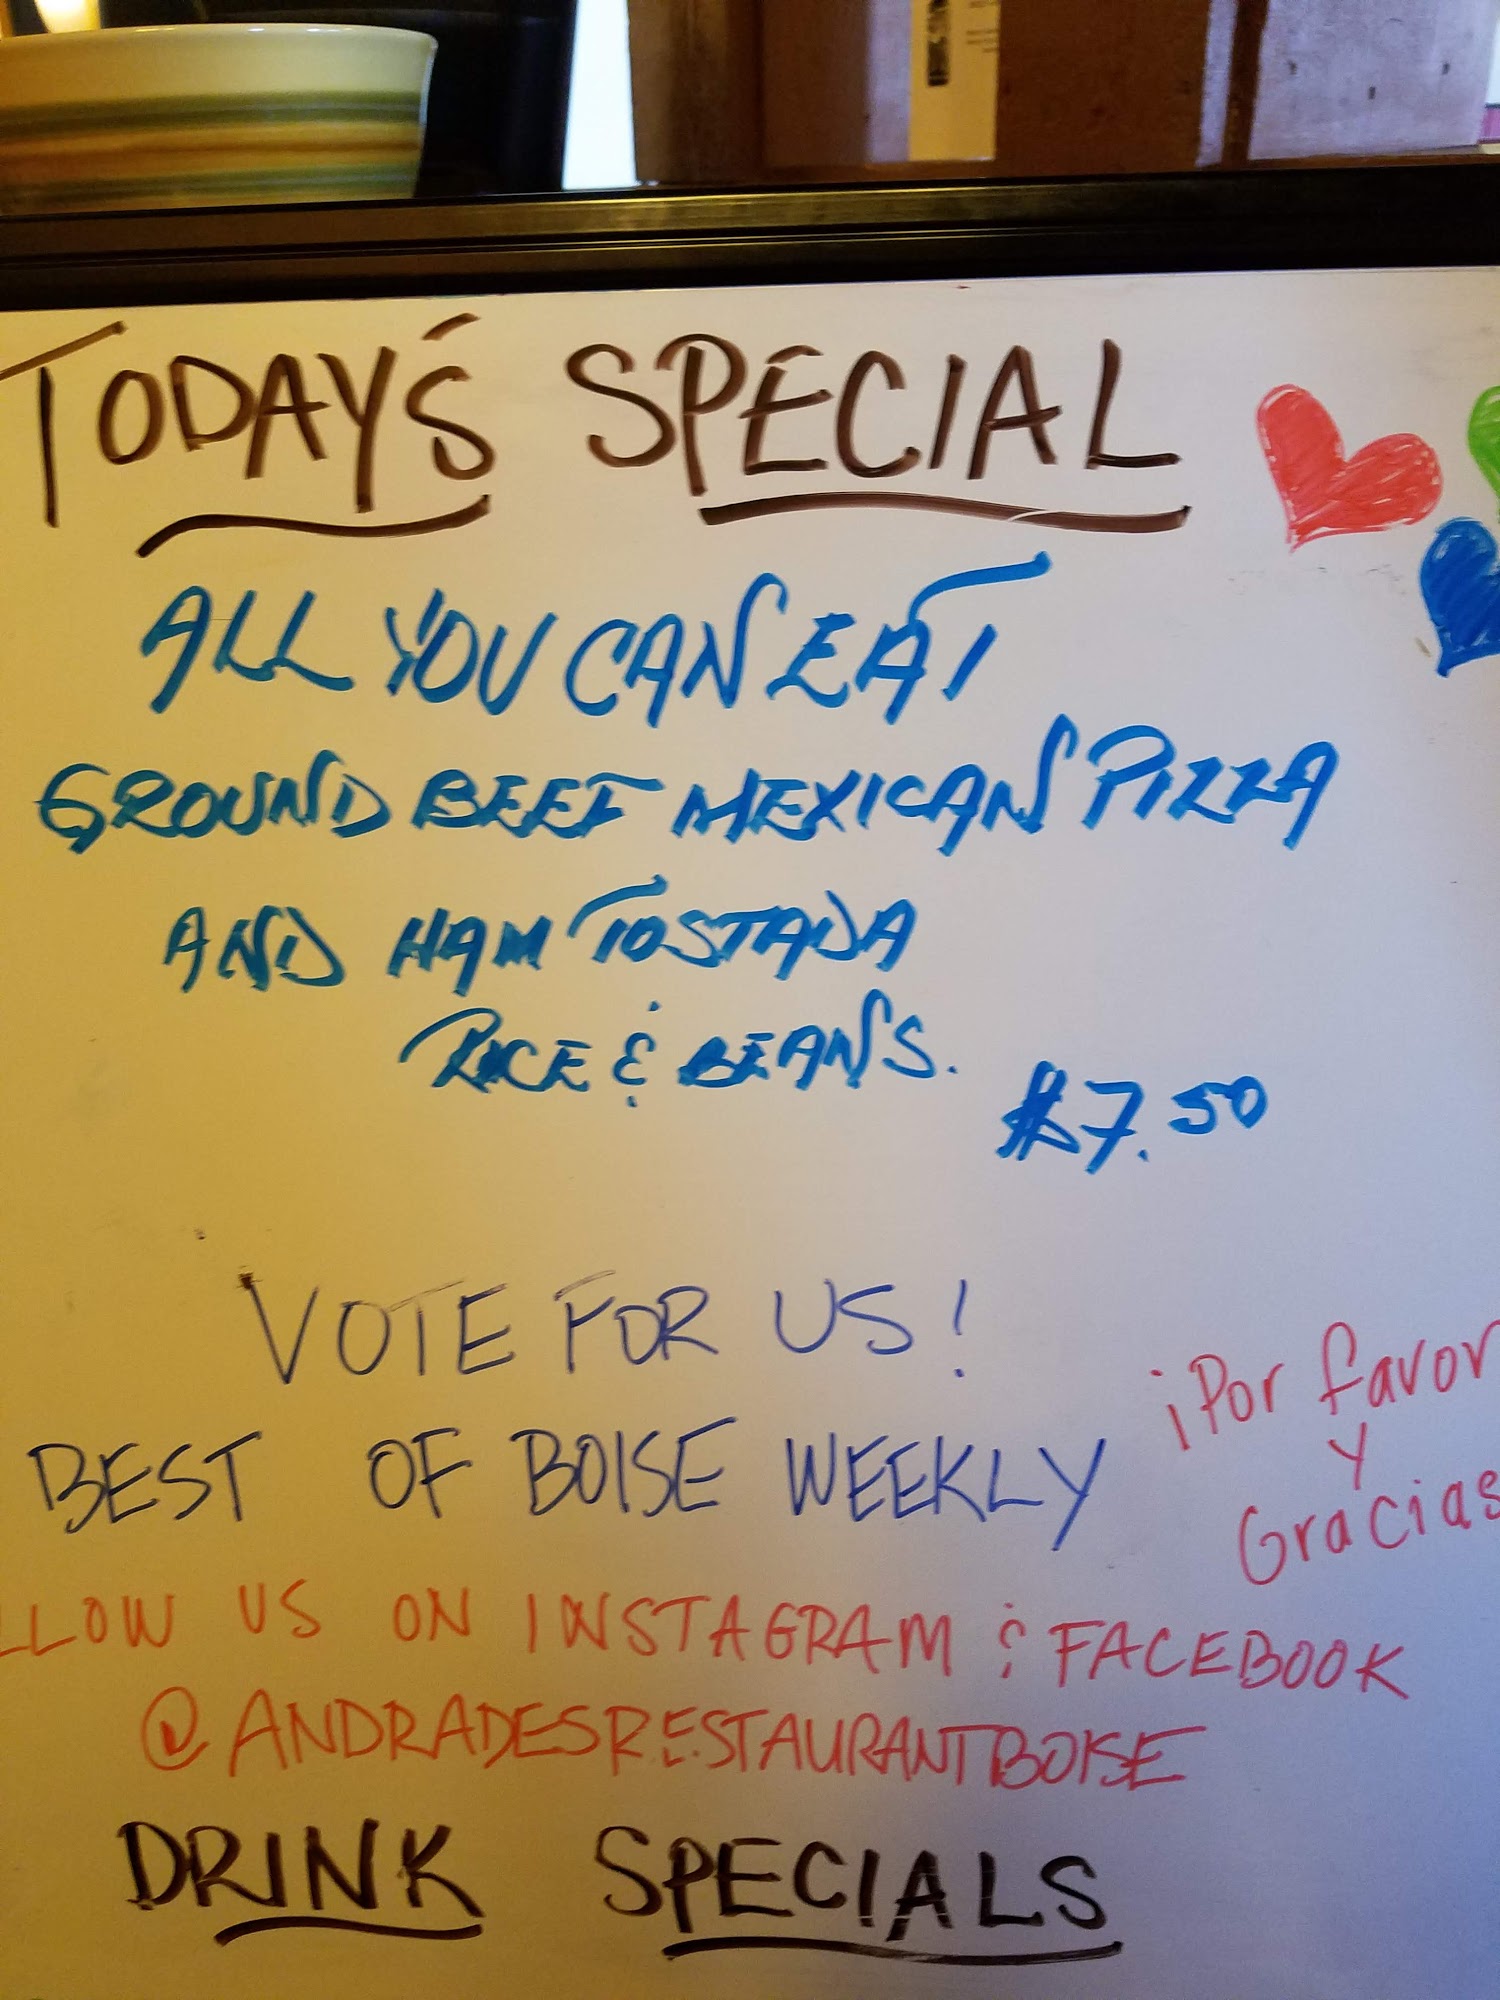 TODAY'S SPECIAL
ALL YOU CAN EAT
GROUND BEEF MEXICAN PIZZA
AND HAM TOSTADA
RICE & BEANS.
$7.50
VOTE FOR US!
BEST OF BOISE WEEKLY
¡Por favor
Y
Gracias
LLOW US ON INSTAGRAM & FACEBOOK
@ANDRADESRESTAURANTBOISE
DRINK SPECIALS